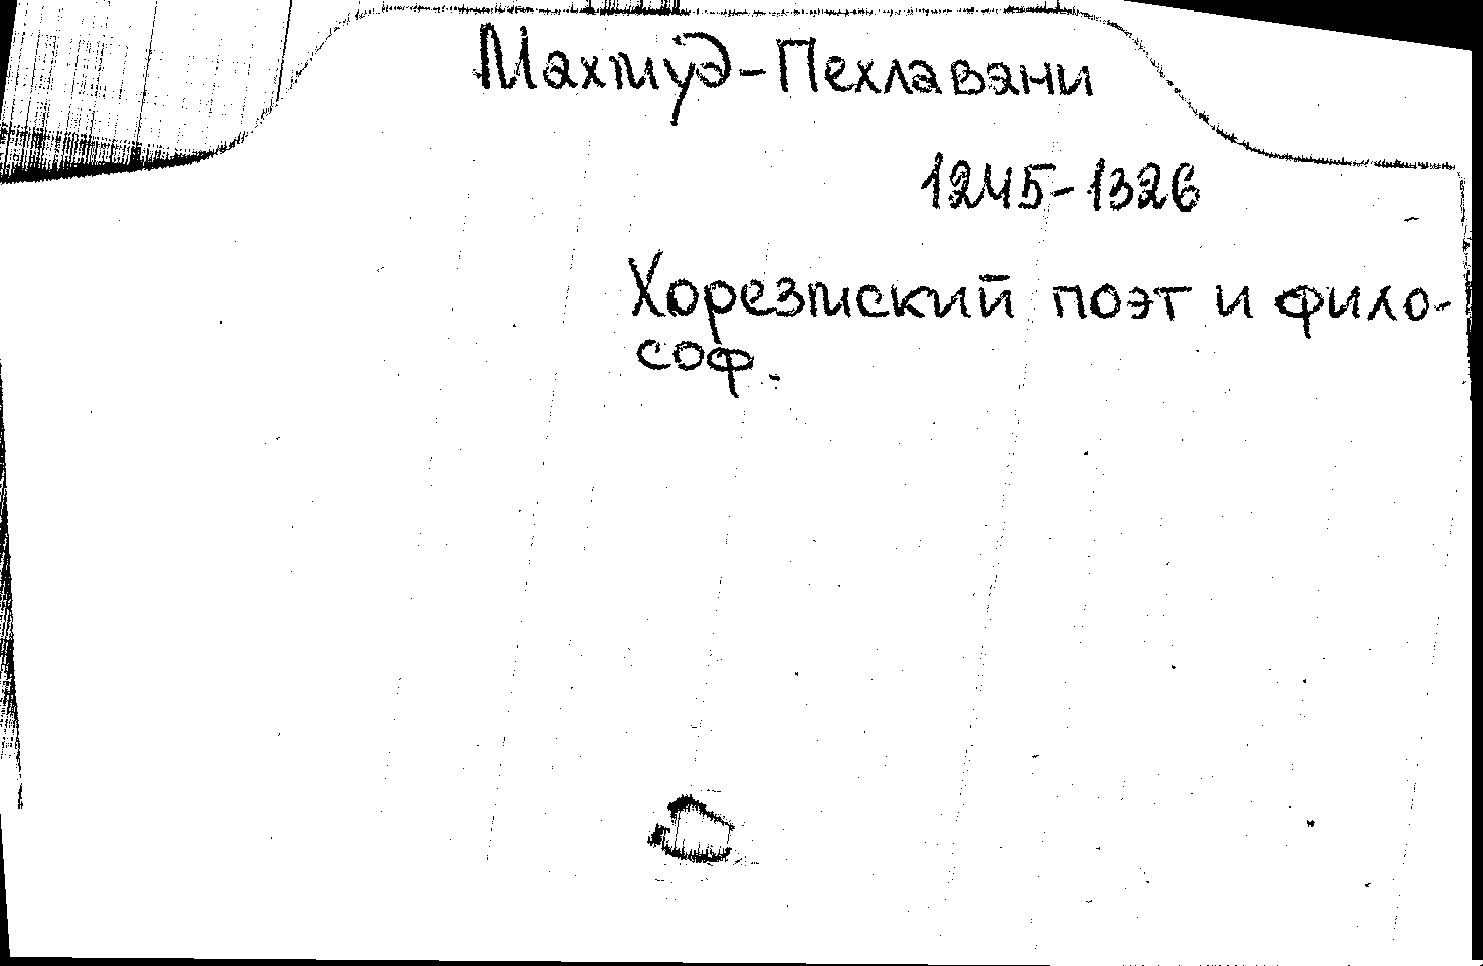 Махмуд-Пехлавани
1245-1326
Хорезмский поэт и фило-
соф.